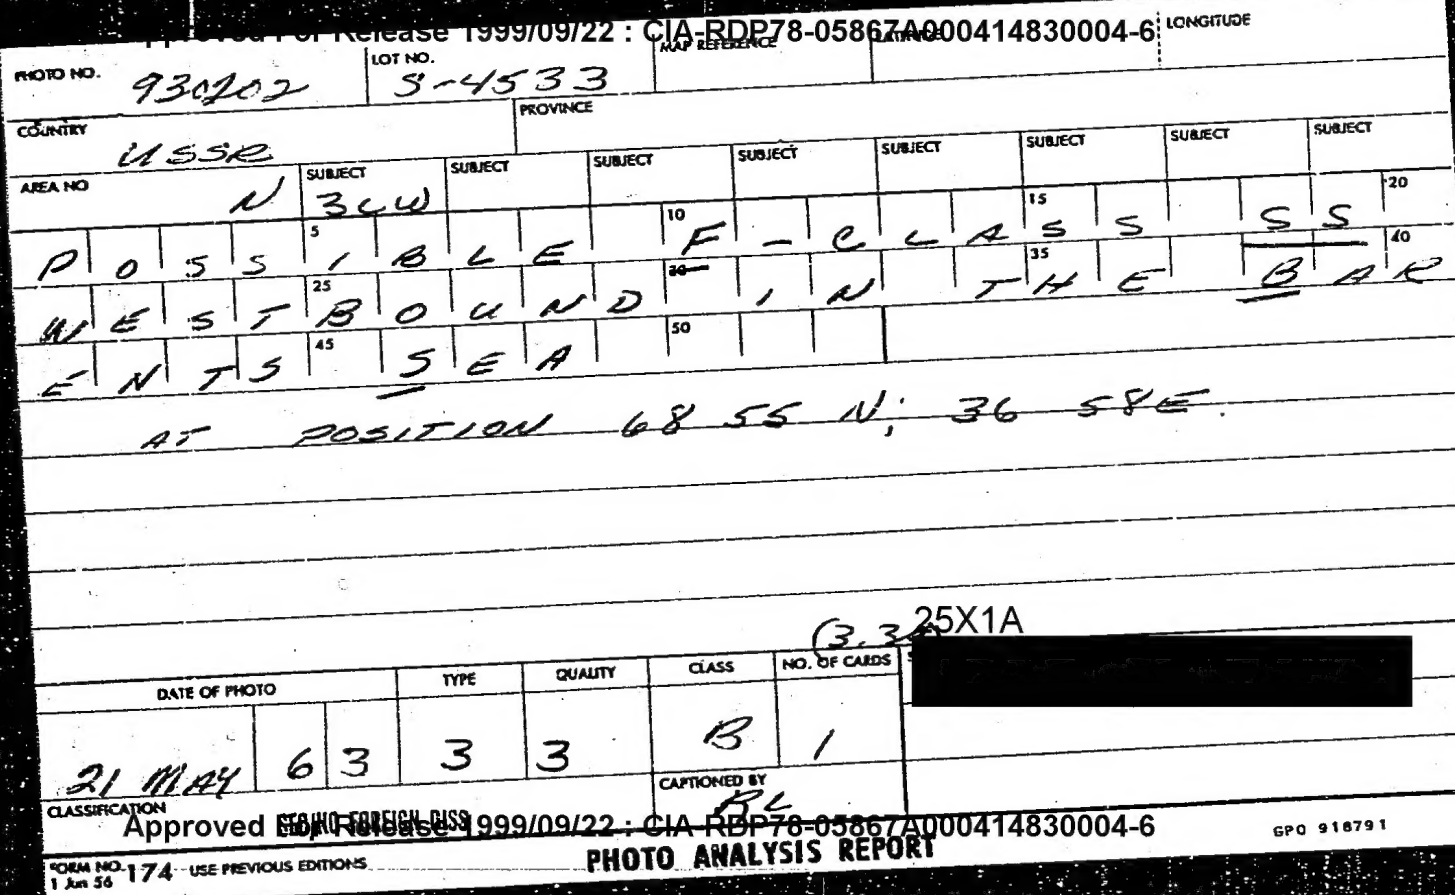 Approved For Release 1999/09/22 : CIA-RDP78-05867A000414830004-6
PHOTO NO. 930202 LOT NO. S-4533 MAP REFERENCE LATITUDE LONGITUDE
COUNTRY USSR PROVINCE
AREA NO N SUBJECT 3CW SUBJECT SUBJECT SUBJECT SUBJECT SUBJECT SUBJECT SUBJECT
5 10 15 20
POSSIBLE F-CLASS SS
25 30 35 40
WESTBOUND IN THE BAR
45 50
ENTS SEA
AT POSITION 68 55 N; 36 58E.
25X1A
DATE OF PHOTO TYPE QUALITY CLASS NO. OF CARDS
21 MAY 63 3 3 B 1
CAPTIONED BY
BL
CLASSIFICATION
Approved For Release 1999/09/22 : CIA-RDP78-05867A000414830004-6
GPO 916791
FORM NO. 174 USE PREVIOUS EDITIONS
1 Jun 56
PHOTO ANALYSIS REPORT